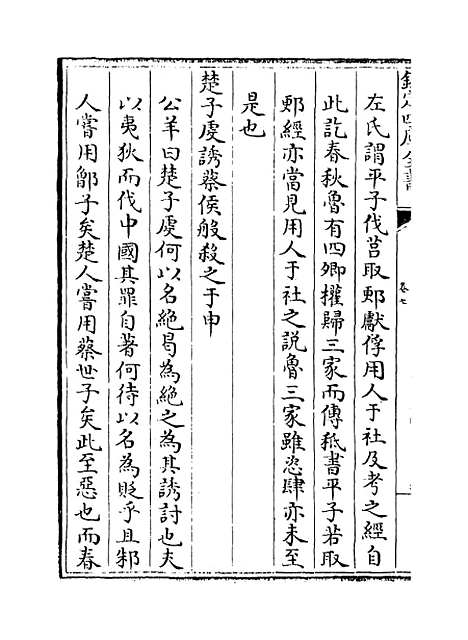 欽定四庫全書
卷七
左氏謂平子伐莒取郠獻俘用人于社及考之經自
此訖春秋魯有四卿權歸三家而傳秪書平子若取
郠經亦當見用人于社之説魯三家雖恣肆亦未至
是也
楚子虔誘蔡侯般殺之于申
公羊曰楚子虔何以名絶曷為絶之為其誘討也夫
以夷狄而伐中國其罪自著何待以名為貶乎且邾
人嘗用鄫子矣楚人嘗用蔡世子矣此至惡也而春